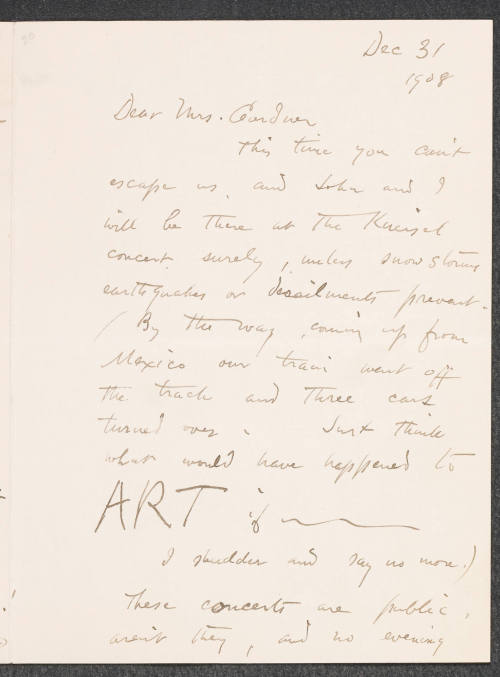 Dec 31
1908
Dear Mrs. Gardner
This time you can't
escape us, and John and I
will be there at the Kneisel
concert surely, unless snow storms
earthquakes or derailments prevent.
(By the way, coming up from
Mexico our train went off
the track and three cars
turned over. Just think
what would have happened to
ART if
I shudder and say no more.)
These concerts are public,
aren't they, and no evening